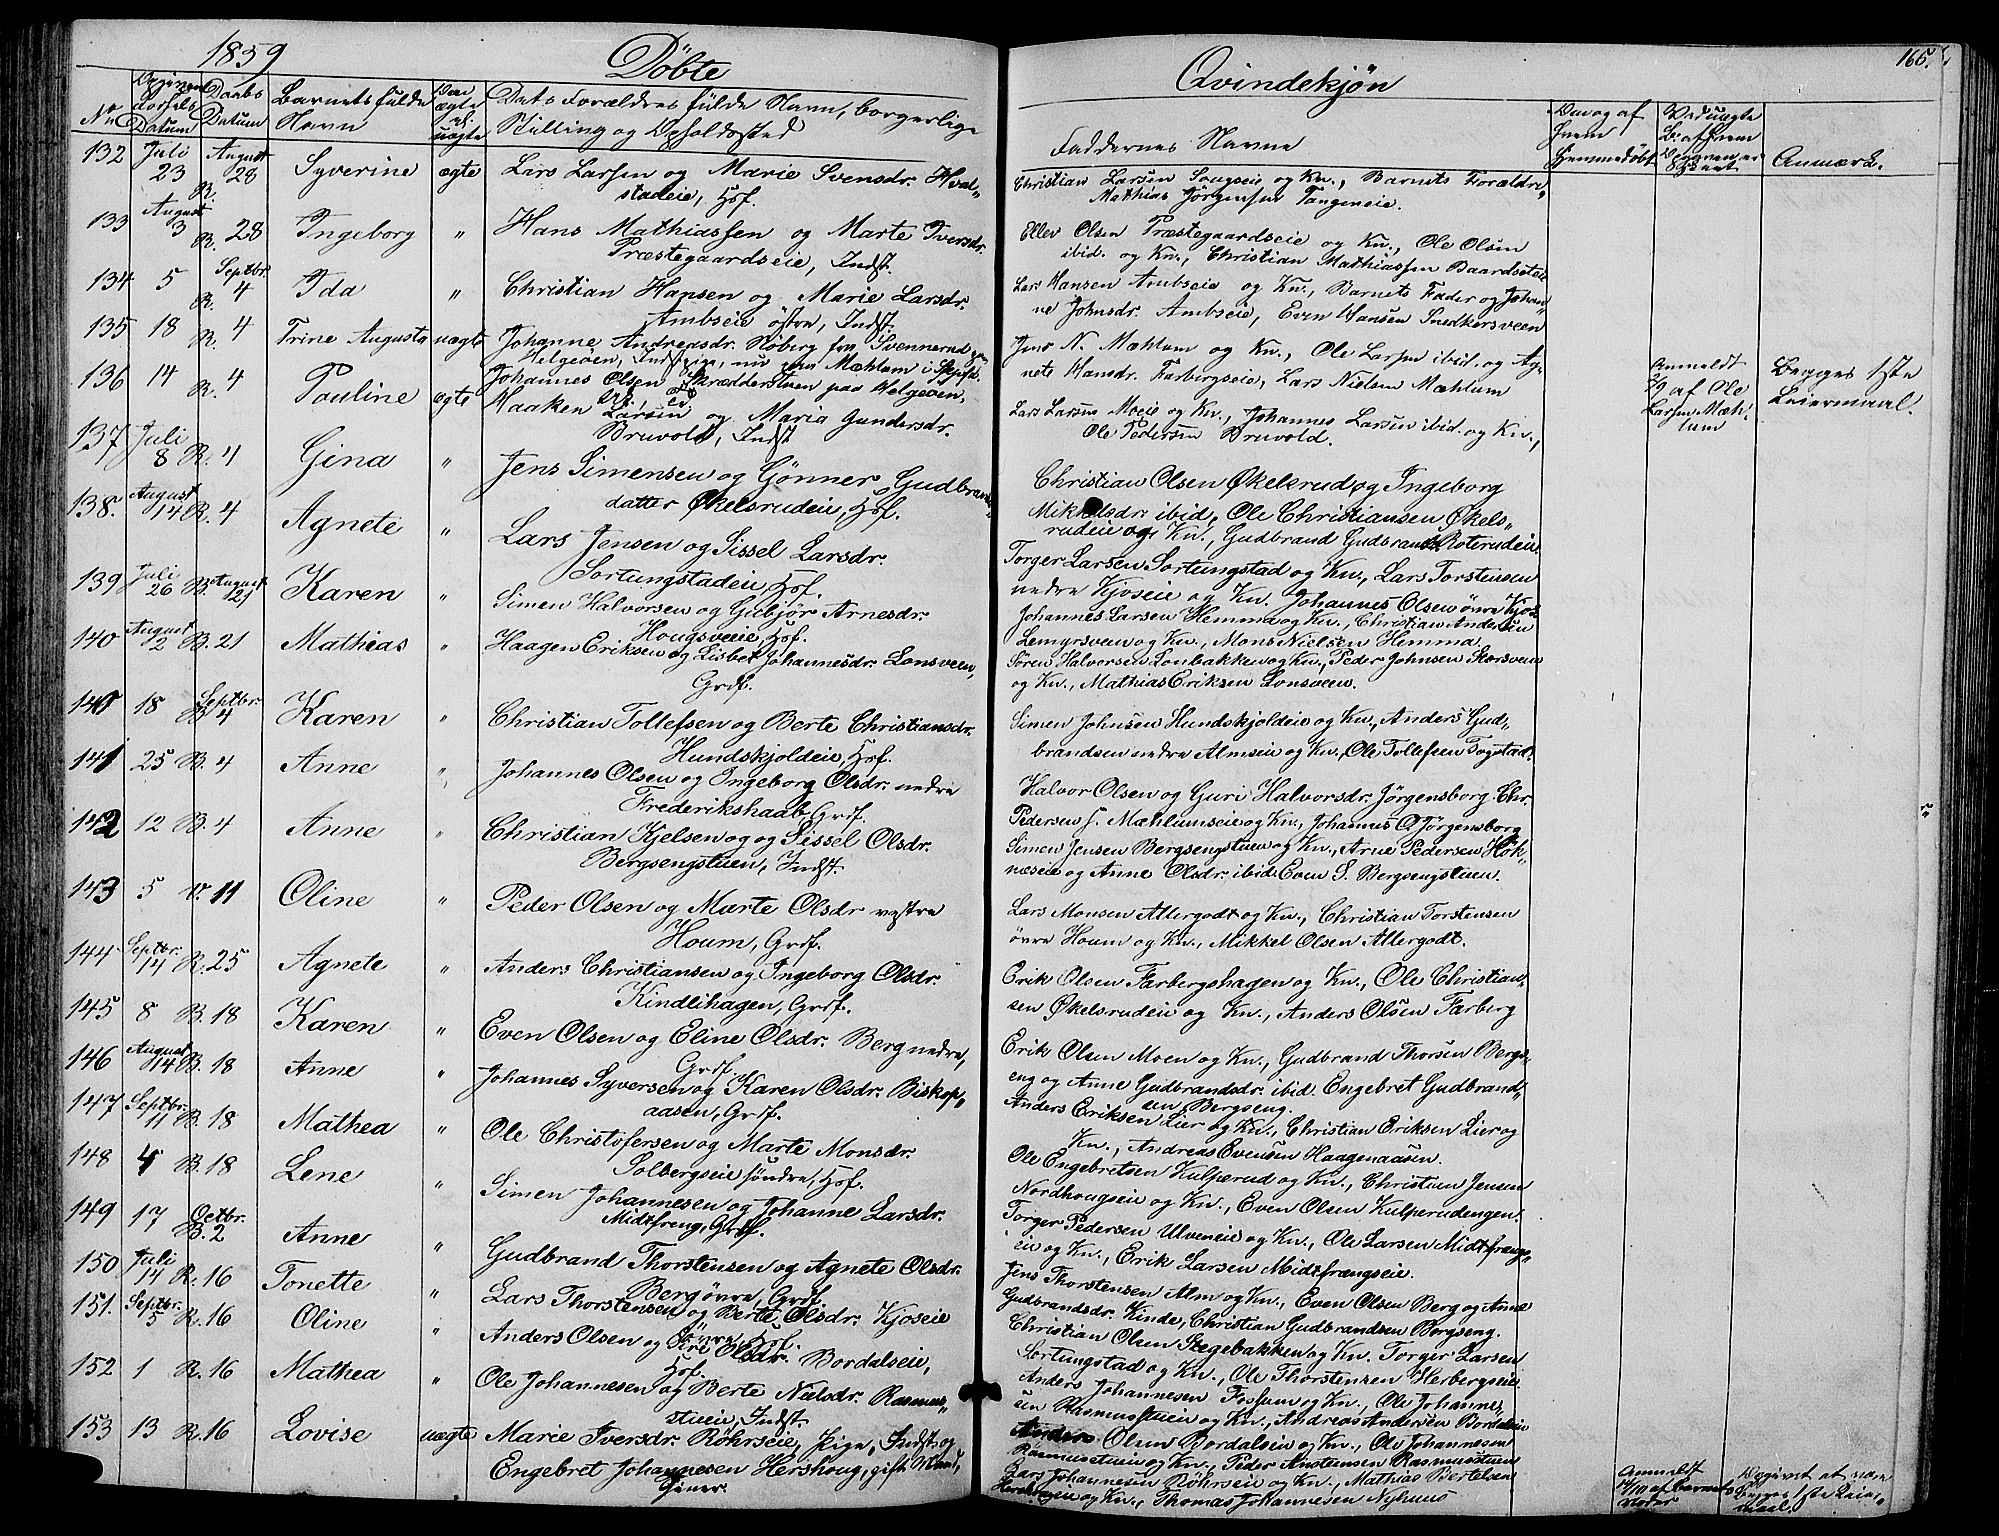 1859 Döbte
No Datum Daabs Datum Barnets fulde Navn ægte uægte Dets Forældres fulde Navn, borgerlige Stilling og Opholdssted
132 Juli 23 R. August 28 Syverine ægte Lars Larsen og Marie Svensdr. Hval„
stadeie, Hof.
133 August 3 R. 28 Ingeborg „ Hans Mathiassen og Marte Iversdr.
Præstegaardseie, Indst.
134 5 R. Septbr. 4 Ida „ Christian Hansen og Marie Larsdr.
Ambseie östre, Indst.
135 18 R. 4 Trine Augusta uægte Johanne Andreasdr. Röberg fra Svennerud
Helgeöen, nu Mæhlum
136 14 R. 4 Pauline ægte Johannes Olsen Skrædderstuen paa Helgeöen,
Haaken Larsen og Maria Gundersdr.
Bruvold, Indst
137 Juli 8 R. 4 Gina „ Jens Simensen og Gönner Gudbrands
datter Økelsrudeie, Hof.
138. August 14 R. 4 Agnete „ Lars Jensen og Sissel Larsdr.
Sortungstadeie, Hof.
139 Juli 26 B. August 21 Karen „ Simen Halvorsen og Gubjör Arnesdr.
Hougsveie, Hof.
140 August 2 B. 21 Mathias „ Haagen Eriksen og Lisbet Johannesdr. Lonsveen,
Grdf.
140 18 B. Septbr. 4 Karen „ Christian Tollefsen og Berte Christiansdr.
Hundskjoldeie, Hof.
141 25 B. 4 Anne „ Johannes Olsen og Ingeborg Olsdr. nedre
Frederikshaab, Grdf.
142 12 B. 4 Anne „ Christian Kjelsen og og Sissel Olsdr.
Bergsengstuen, Indst.
143 5 v. 11 Oline „ Peder Olsen og Marte Olsdr vestre
Houm, Grdf.
144 Septbr. 14 R. 25 Agnete „ Anders Christiansen og Ingeborg Olsdr.
Kindlihagen, Grdf.
145 8 B. 18 Karen „ Even Olsen og Eline Olsdr. Berg nedre,
Grdf.
146 August 14 B. 18 Anne „ Johannes Syversen og Karen Olsdr. Biskop„
aasen, Grdf.
147 Septbr. 11 B. 18 Mathea „ Ole Christofersen og Marte Monsdr.
Solbergseie söndre, Hof.
148 4 B. 18 Lene „ Simen Johannesen og Johanne Larsdr.
Midtfreng, Grdf.
149 17 Octbr. B. 2 Anne „ Gudbrand Thorstensen og Agnete Olsdr.
Berg övre, Grdf.
150 Juli 14 R. 16 Tonette Lars Thorstensen og Berte Olsdr. Kjoseie
övre, Hof.
151. Septbr. 5 R. 16 Oline „ Anders Olsen og Kri Olsdr. Bordalseie,
Hof.
152 1 R. 16 Mathea „ Ole Johannesen og Berte Nielsdr. Rasmus„
stueie, Indst.
153 13 R. 16 Lovise uægte Marie Iversdr. Röhrseie, Pige, Indst og
Engebret Johannesen Hershoug, gift Mand,
166.
Qvindekjön
Faddernes Navne Hjemmedöbt Anmærk.
Christian Larsen Sougseie og Kn., Barnets Forældre,
Mathias Jörgensen Tangeneie.
Ellev Olsen Præstegaardseie og Kn., Ole Olsen
ibid. og Kn., Christian Mathiassen Baardseteie
Lars Hansen Ambseie og Kn., Barnets Fader og Johan„
ne Johnsdr. Ambseie, Even Hansen Snedkersveen
Jens N. Mæhlum og Kn., Ole Larsen ibid. og Ag„
nete Hansdr. Farbergseie, Lars Nielsen Mæhlum
Anmeldt 2/9 af Ole Larsen Mæhlum
Begges 1ste Leiermaal.
Lars Larsen Moeie og Kn., Johannes Larsen ibid. og Kn.,
Ole Pedersen Bruvold.
Christian Olsen Økelsrud og Ingeborg
Mikkelsdr. ibid, Ole Christiansen Økels„
rudeie og Kn., Gudbrand Gudbrands. Roterudeie
Torger Larsen Sortungstad og Kn., Lars Torstensen
nedre Kjoseie og Kn. Johannes Olsen övre Kjos
Johannes Larsen Hemma og Kn., Christian Andersen
Lemyrsveen og Kn., Mons Nielsen Hemma,
Sören Halvorsen Lonbakken og Kn., Peder Johnsen Skarsveen
og Kn., Mathias Eriksen Lonsveen.
Simen Johnsen Hundskjoldeie og Kn., Anders Gud„
brandsen nedre Almseie og Kn., Ole Tollefsen Togstad.
Halvor Olsen og Guri Halvorsdr. Jörgensborg. Chr.
Pedersen S. Mæhlumseie og Kn., Johannes O. Jörgensborg
Simen Jensen Bergsengstuen og Kn., Arne Pedersen Hök„
næseie og Anne Olsdr. ibid. Even S. Bergsengstuen.
Lars Monsen Allergodt og Kn., Christian Torstensen
övre Houm og Kn., Mikkel Olsen Allergodt.
Erik Olsen Farbergshagen og Kn., Ole Christian„
sen Økelsrudeie og Kn., Anders Olsen Farberg
Erik Olsen Moen og Kn., Gudbrand Thorsen Bergs„
eng og Anne Gudbrandsdr. ibid. Engebret Gudbrand„
sen Bergseng.
Anders Eriksen Lier og Kn., Christian Eriksen Lier og
Kn., Andreas Evensen Haagenaasen.
Ole Engebretsen Kulperud og Kn., Christian Jensen
Nordhougseie og Kn., Even Olsen Kulperudengen.
Torger Pedersen Ulveneie og Kn., Ole Larsen Midtfrengs„
eie og Kn., Erik Larsen Midtfrængseie.
Jens Thorstensen Alm og Kn., Even Olsen Berg og Anne
Gudbrandsdr. Kinde, Christian Gudbrandsen Bergseng.
Christian Olsen Stegebakken og Kn. Torger Larsen
Sortungstad og Kn., Ole Thorstensen Herbergseie.
Anders Johannesen Fossum og Kn., Ole Johanne„
sen Rasmusstueie og Kn., Andreas Andersen Bordaleie
Anders Olsen Bordalseie og Kn., Ole Johannesen
Rasmusstueie og Kn., Peder Anstensen Rasmusstuen
Lars Johannesen Röhrseie og Kn., Mathias Bertelsen
Hershougeie og Kn., Thomas Johannesen Nyhuus
Anmeldt
Opgivet at være Begges 1ste Leiermaal.